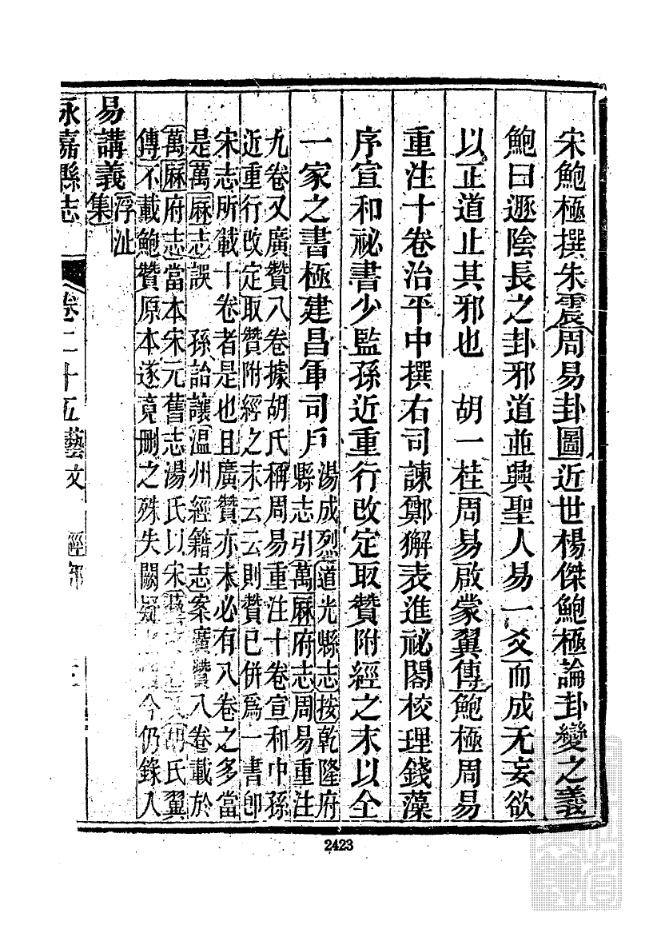 宋鮑極撰朱震周易卦圖近世楊傑鮑極論卦變之義
鮑曰遯陰長之卦邪道並興聖人易一爻而成无妄欲
以正道止其邪也　胡一桂周易啟蒙翼傳鮑極周易
重注十卷治平中撰右司諫鄭獬表進祕閣校理錢藻
序宣和祕書少監孫近重行改定取贊附經之末以全
一家之書極建昌軍司戶
湯成烈道光縣志按乾隆府
縣志引萬厤府志周易重注
九卷又廣贊八卷據胡氏稱周易重注十卷宣和中孫
近重行改定取贊附經之末云云則贊已併為一書卽
宋志所載十卷者是也且廣贊亦未必有八卷之多當
是萬厤志誤　孫詒讓溫州經籍志案廣贊八卷載於
萬厤府志當本宋元舊志湯氏以宋藝 胡氏翼
傳不載鮑贊原本遂竟刪之殊失闕疑 今仍錄入
易講義
浮沚
集
永嘉縣志
卷二十五藝文
經部
2423